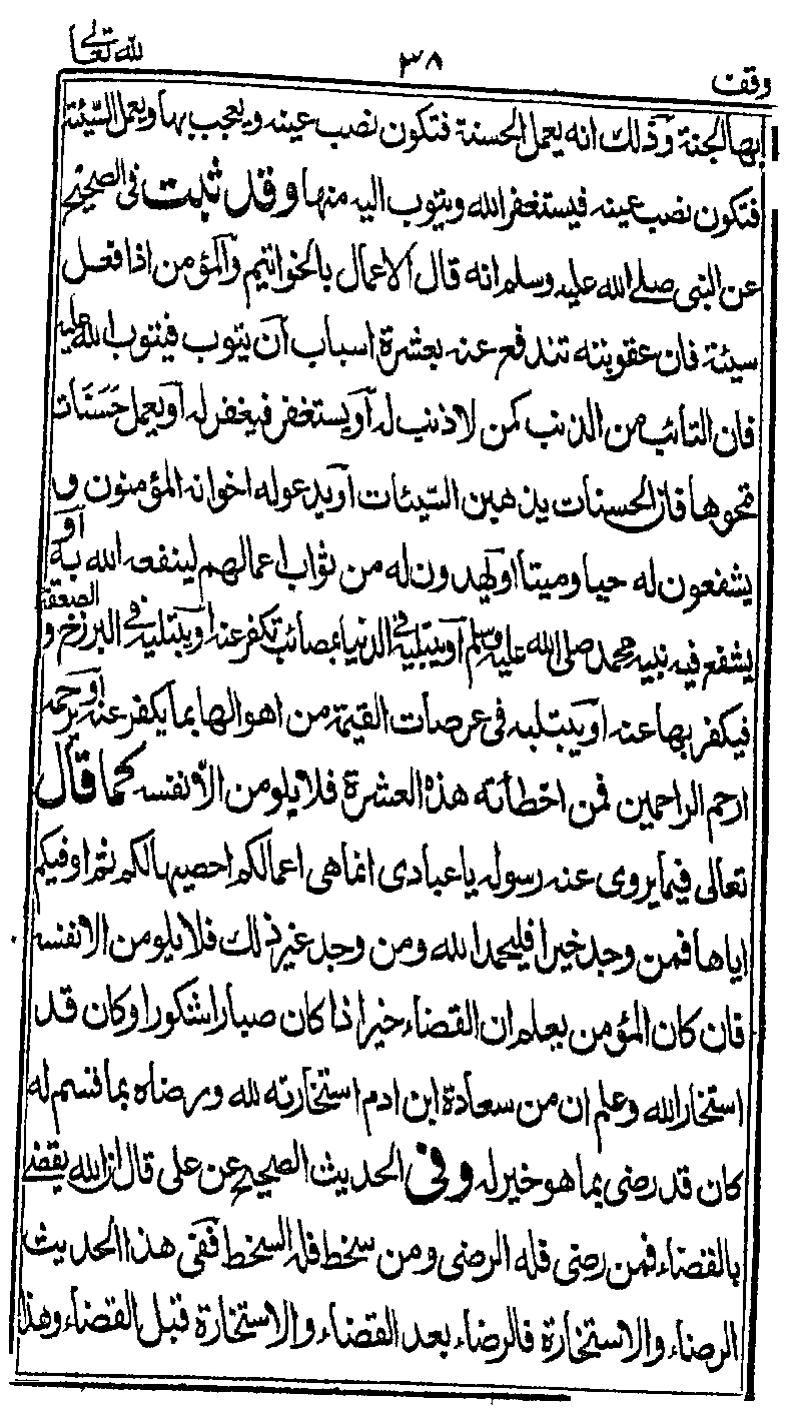 وقف ٣٨ لله تعالى
بها الجنة وذلك انه يعمل الحسنة فتكون نصب عينه ويعجب بها ويعمل السّيّئة
فتكون نصب عينه فيستغفر الله ويتوب اليه منها وقد ثبت فى الصحيح
عن النبى صلى الله عليه وسلم انه قال الاعمال بالخواتيم والمؤمن اذا فعل
سيئة فان عقوبته تندفع عنه بعشرة اسباب ان يتوب فيتوب الله عليه
فان التائب من الذنب كمن لا ذنب له او يستغفر فيغفر له او يعمل حَسَنَات
تمحوها فان الحسنات يذهبن السّيئات او يدعو له اخوانه المؤمنون و
يشفعون له حيا وميتا او يهدون له من ثواب اعمالهم لينفعه الله به او
يشفع فيه نبيه محمد صلى الله عليه وسلم او يبتليه فى الدنيا بمصائب تكفر عنه او يبتليه فى البرزخ والصعقة
فيكفر بها عنه او يبتليه فى عرصات القيمة من اهوالها بما يكفر عنه او يرحمه
ارحم الراحمين فمن اخطأته هذه العشرة فلا يلومن الا نفسه كما قال
تعالى فيما يروى عنه رسوله يا عبادى انما هى اعمالكم احصيها لكم ثم اوفيكم
اياها فمن وجد خيرا فليحمد الله ومن وجد غير ذلك فلا يلومن الا نفسه
فان كان المؤمن يعلم ان القضاء خير اذا كان صبارا شكورا وكان قد
استخار الله وعلم ان من سعادة ابن ادم استخارته لله ورضاه بما قسم له
كان قد رضى بما هو خير له وفى الحديث الصحيح عن على قال ان الله يقضى
بالقضاء فمن رضى فله الرضى ومن سخط فله السخط ففى هذا الحديث
الرضاء والاستخارة فالرضاء بعد القضاء والاستخارة قبل القضاء وهذا